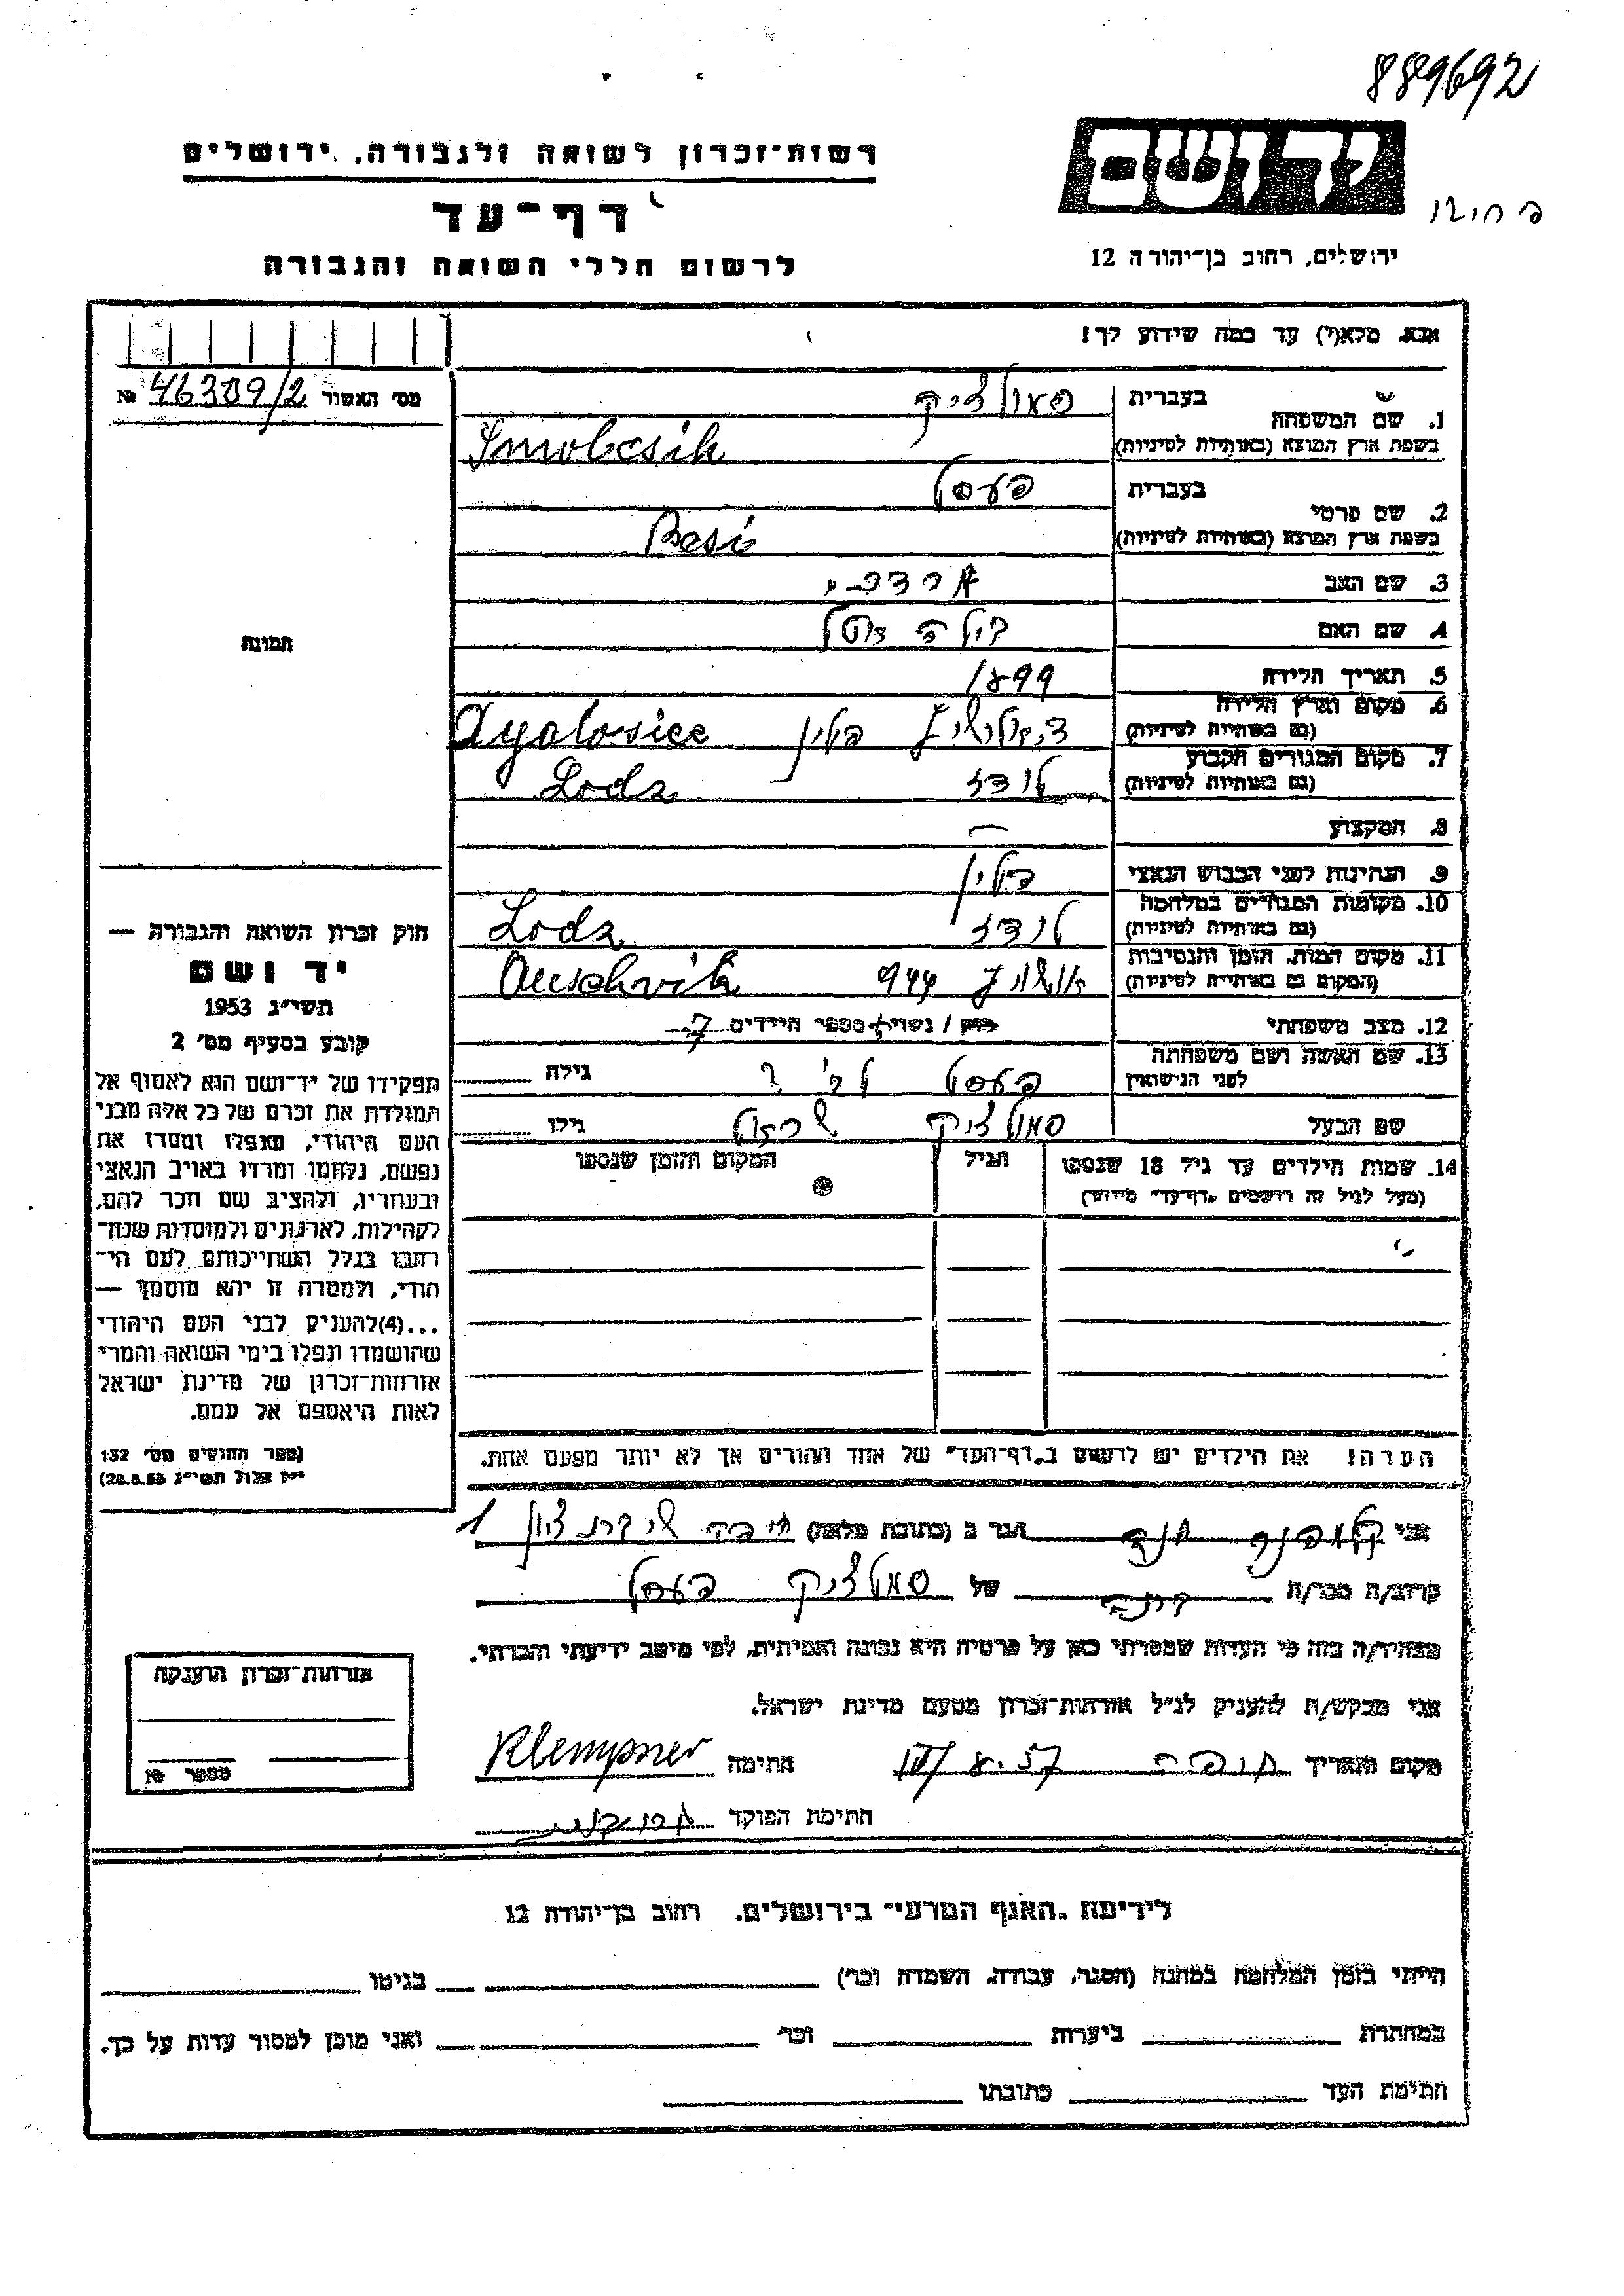 889692
רשות־זכרון לשואה ולגבורה, ירושלים
דף־עד
לרשום חללי השואה והגבורה
יד ושם
ירושלים, רחוב בן־יהודה 12
אנא, מלא(י) עד כמה שידוע לך!
מס׳ האשור 46309/2 №
תמונה
1. שם המשפחה
בעברית סמולציק
בשפת ארץ המוצא (באותיות לטיניות) Smolcsik
2. שם פרטי
בעברית פעסל
בשפת ארץ המוצא (באותיות לטיניות) Besi
3. שם האב מרדכי
4. שם האם
5. תאריך הלידה 1899
6. מקום וארץ הלידה
(גם באותיות לטיניות) פולין Dzialosice
7. מקום המגורים הקבוע
(גם באותיות לטיניות) לודז Lodz
8. המקצוע —
9. הנתינות לפני הכבוש הנאצי פולין
10. מקומות המגורים במלחמה
(גם באותיות לטיניות) לודז Lodz
11. מקום המות, הזמן והנסיבות
(המקום גם באותיות לטיניות) אושויץ 944 Auschvitz
12. מצב משפחתי רוק / נשוי + מספר הילדים 7
13. שם האשה ושם משפחתה
לפני הנישואין פעסל גילה
שם הבעל סמולציק גילו
14. שמות הילדים עד גיל 18 שנספו
(מעל לגיל זה רושמים „דף־עד״ מיוחד)
הגיל
המקום והזמן שנספו
הערה! את הילדים יש לרשום ב„דף־העד״ של אחד ההורים אך לא יותר מפעם אחת.
חוק זכרון השואה והגבורה —
יד ושם
תשי״ג 1953
קובע בסעיף מס׳ 2
תפקידו של יד־ושם הוא לאסוף אל
המולדת את זכרם של כל אלה מבני
העם היהודי, שנפלו ומסרו את
נפשם, נלחמו ומרדו באויב הנאצי
ובעוזריו, ולהציב שם וזכר להם,
לקהילות, לארגונים ולמוסדות שנח־
רבו בגלל השתייכותם לעם הי־
הודי, ולמטרה זו יהא מוסמך —
...(4)להעניק לבני העם היהודי
שהושמדו ונפלו בימי השואה והמרי
אזרחות־זכרון של מדינת ישראל
לאות היאספם אל עמם.
(ספר החוקים מס׳ 132
י״ז אלול תשי״ג 28.8.53)
אני קלמפנר חנה הגר ב (כתובת מלאה) חיפה שיבת ציון 1
קרוב/ה מכר/ה של סמולציק פעסל
מצהיר/ה בזה כי העדות שמסרתי כאן על פרטיה היא נכונה ואמיתית, לפי מיטב ידיעתי והכרתי.
אני מבקש/ת להעניק לנ״ל אזרחות־זכרון מטעם מדינת ישראל.
מקום ותאריך חיפה חתימה Klempner
חתימת הפוקד
אזרחות־זכרון הוענקה
מספר №
לידיעת „האגף המדעי״ בירושלים, רחוב בן־יהודה 12
הייתי בזמן המלחמה במחנה (הסגר, עבודה, השמדה וכו׳) בגיטו
במחתרת ביערות וכו׳ ואני מוכן למסור עדות על כך.
חתימת העד כתובתו